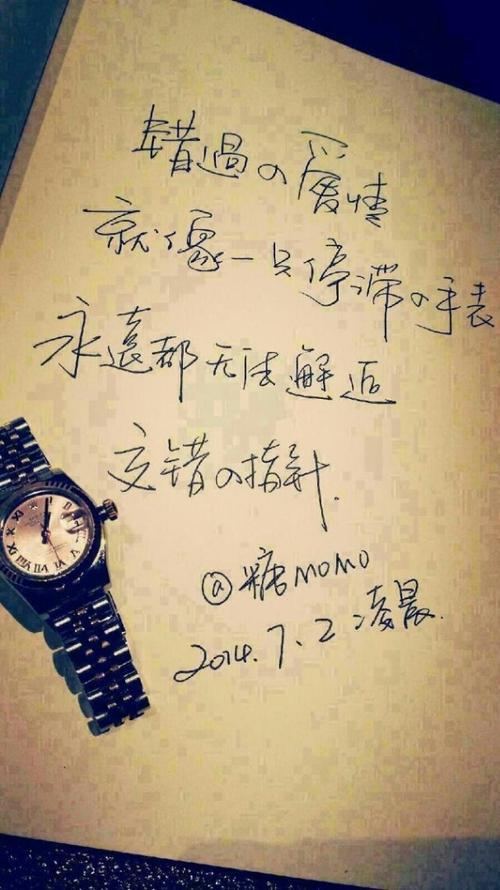 錯過の愛情
就像一只停滞の手表
永遠都无法邂逅
交錯の指針.
@糖momo
2014.7.2凌晨.